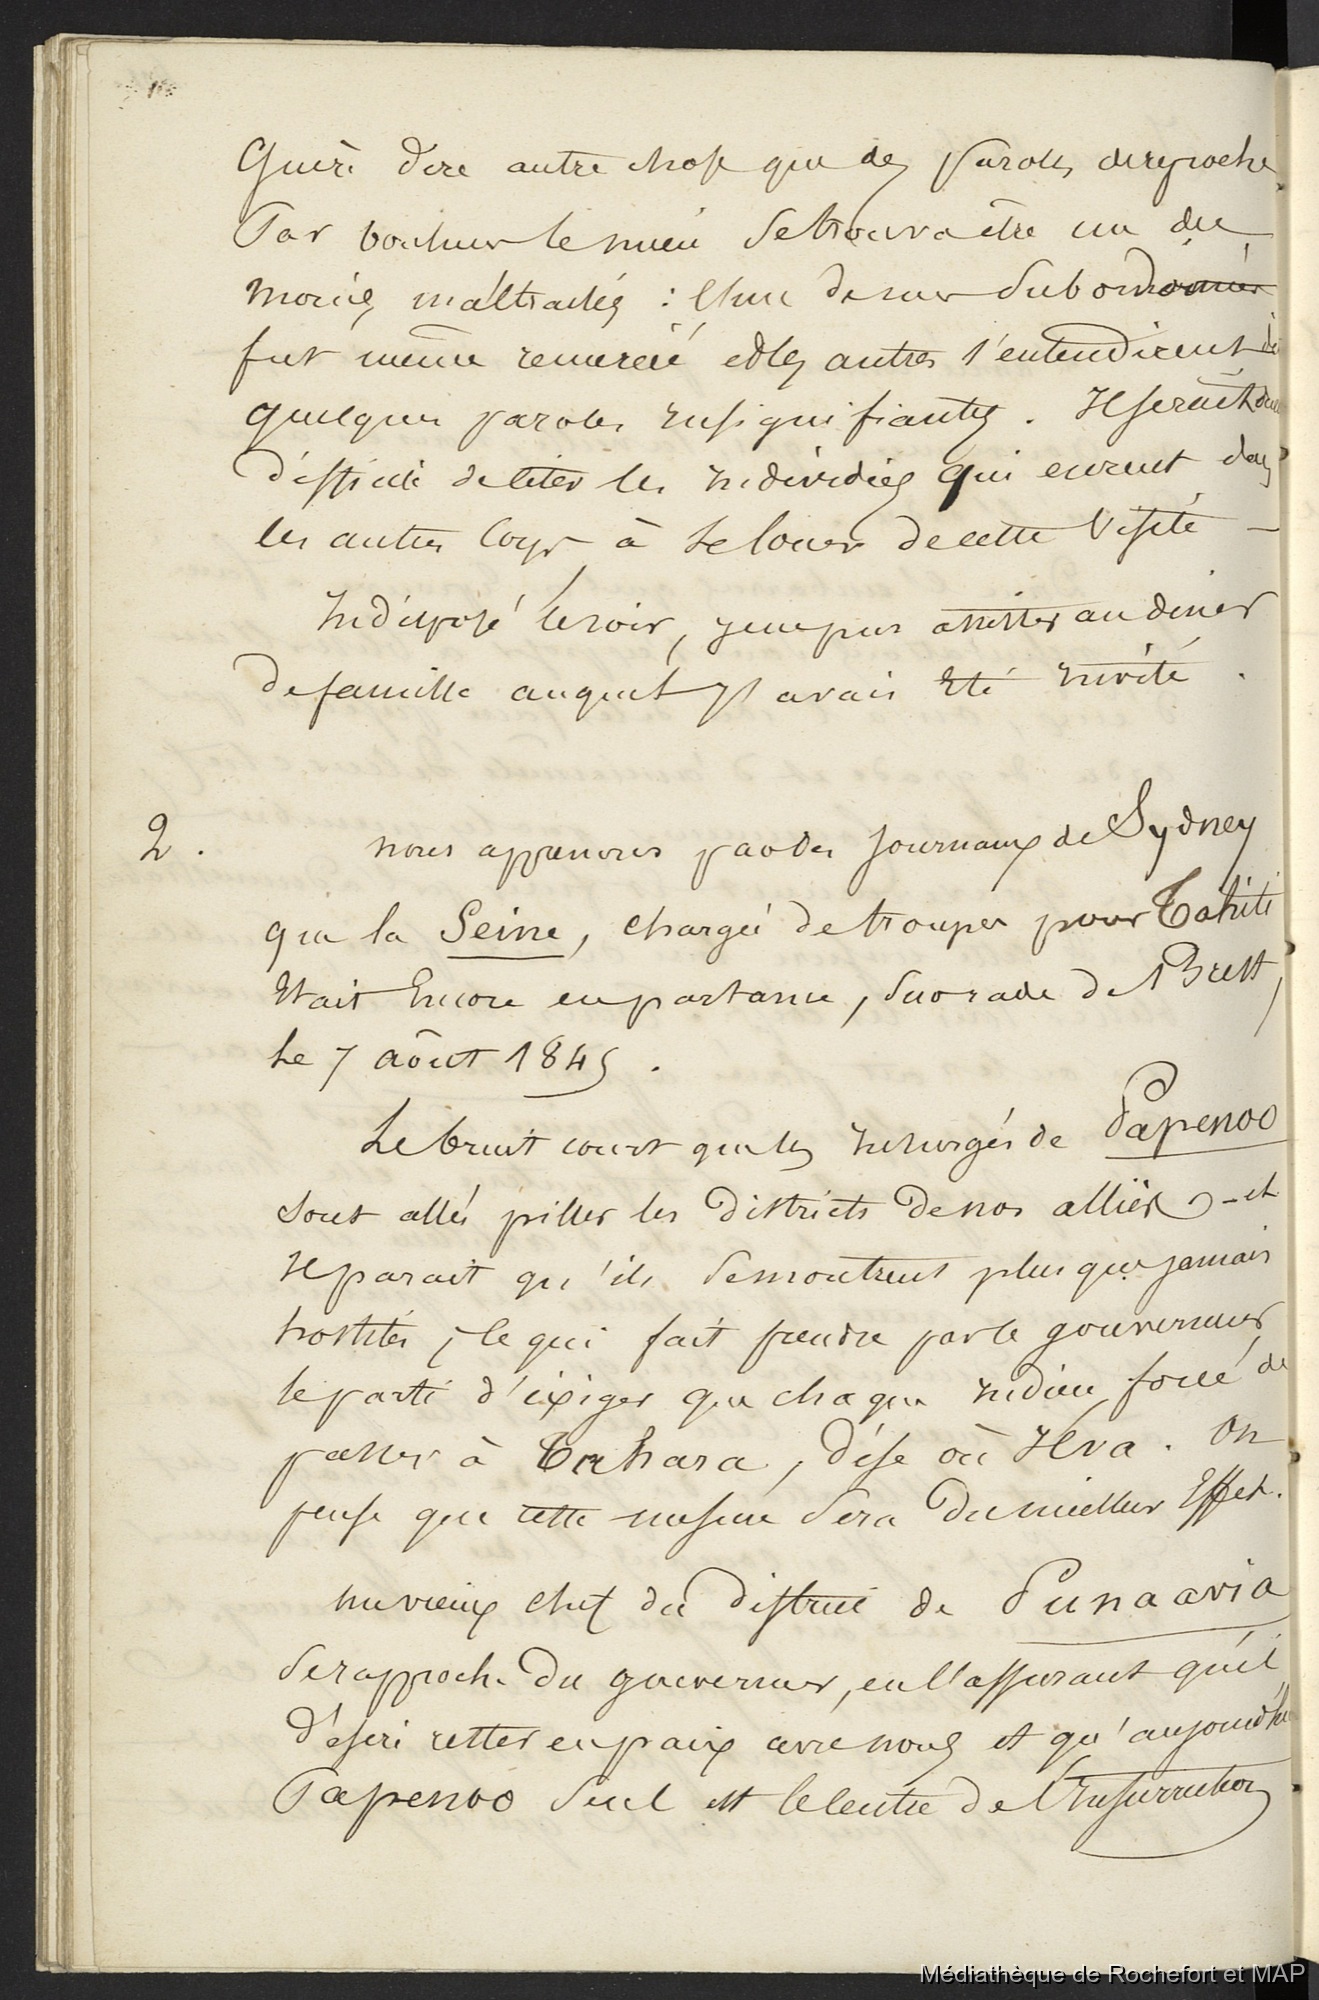 Guère dire autre chose que des paroles de reproche.
Par bonheur le mien se trouva être un des
moins maltraités : l'un de mes subordonnés
fut même remercié et les autres s'entendirent dire
quelques paroles insignifiantes. Il serait
difficile de citer les individus qui eurent dans
les autres Corps à se louer de cette visite —
Indisposé le soir, je ne pus assister au diner
de famille auquel j'avais été invité.
2. nous apprenons par des journaux de Sydney
que la Seine, chargée de troupes pour Tahiti
était Encore en partance, sur rade de Brest,
le 7 août 1845.
Le bruit court que les insurgés de Papenoo
sont allés piller les districts de nos alliés - et
il parait qu'ils se montrent plus que jamais
hostiles, ce qui fait prendre par le gouverneur
le parti d'exiger que chaque indien, forcé de
passer à Tahara, dise où il va. On
pense que cette mesure sera du meilleur Effet.
un vieux chef du district de Punaavia
se rapproche du gouverneur, en l'assurant qu'il
désire rester en paix avec nous et qu'aujourd'hui
Papenoo seul est le centre de l'Insurrection
Médiathèque de Rochefort et MAP